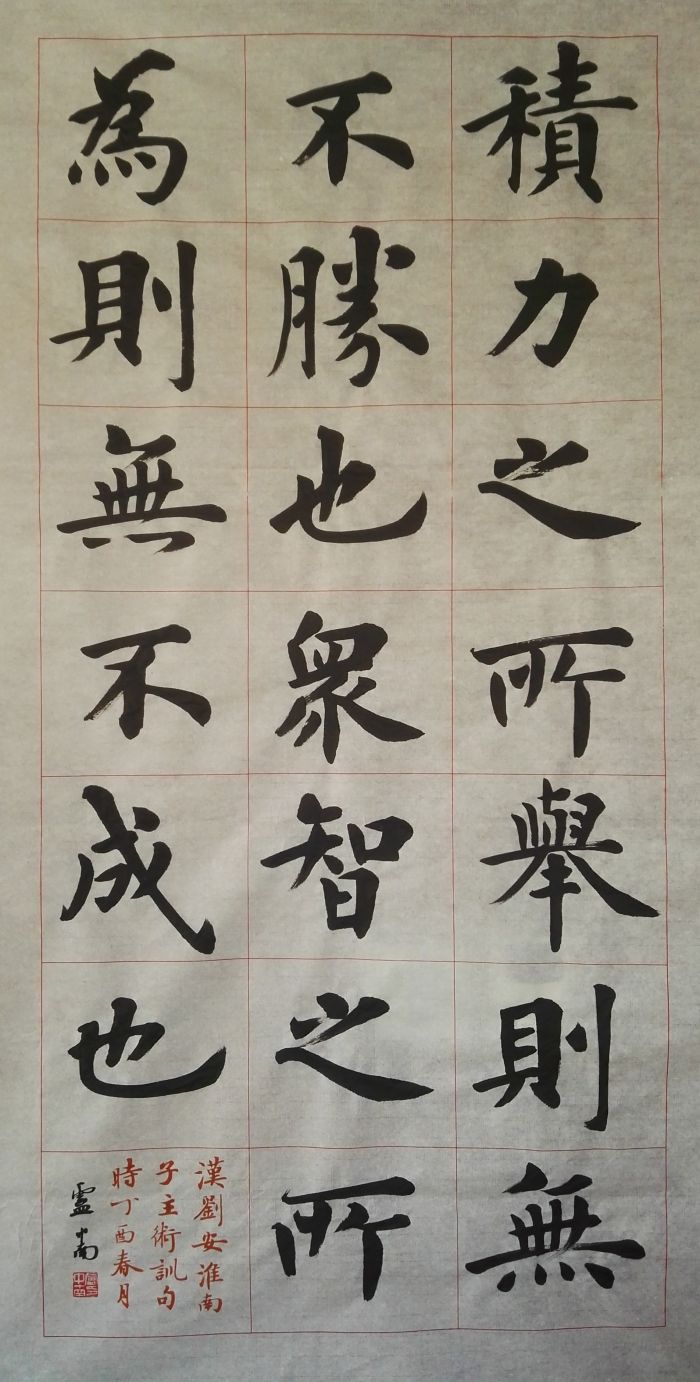 積力之所舉則無
不勝也衆智之所
為則無不成也
漢劉安淮南
子主術訓句
時丁酉春月